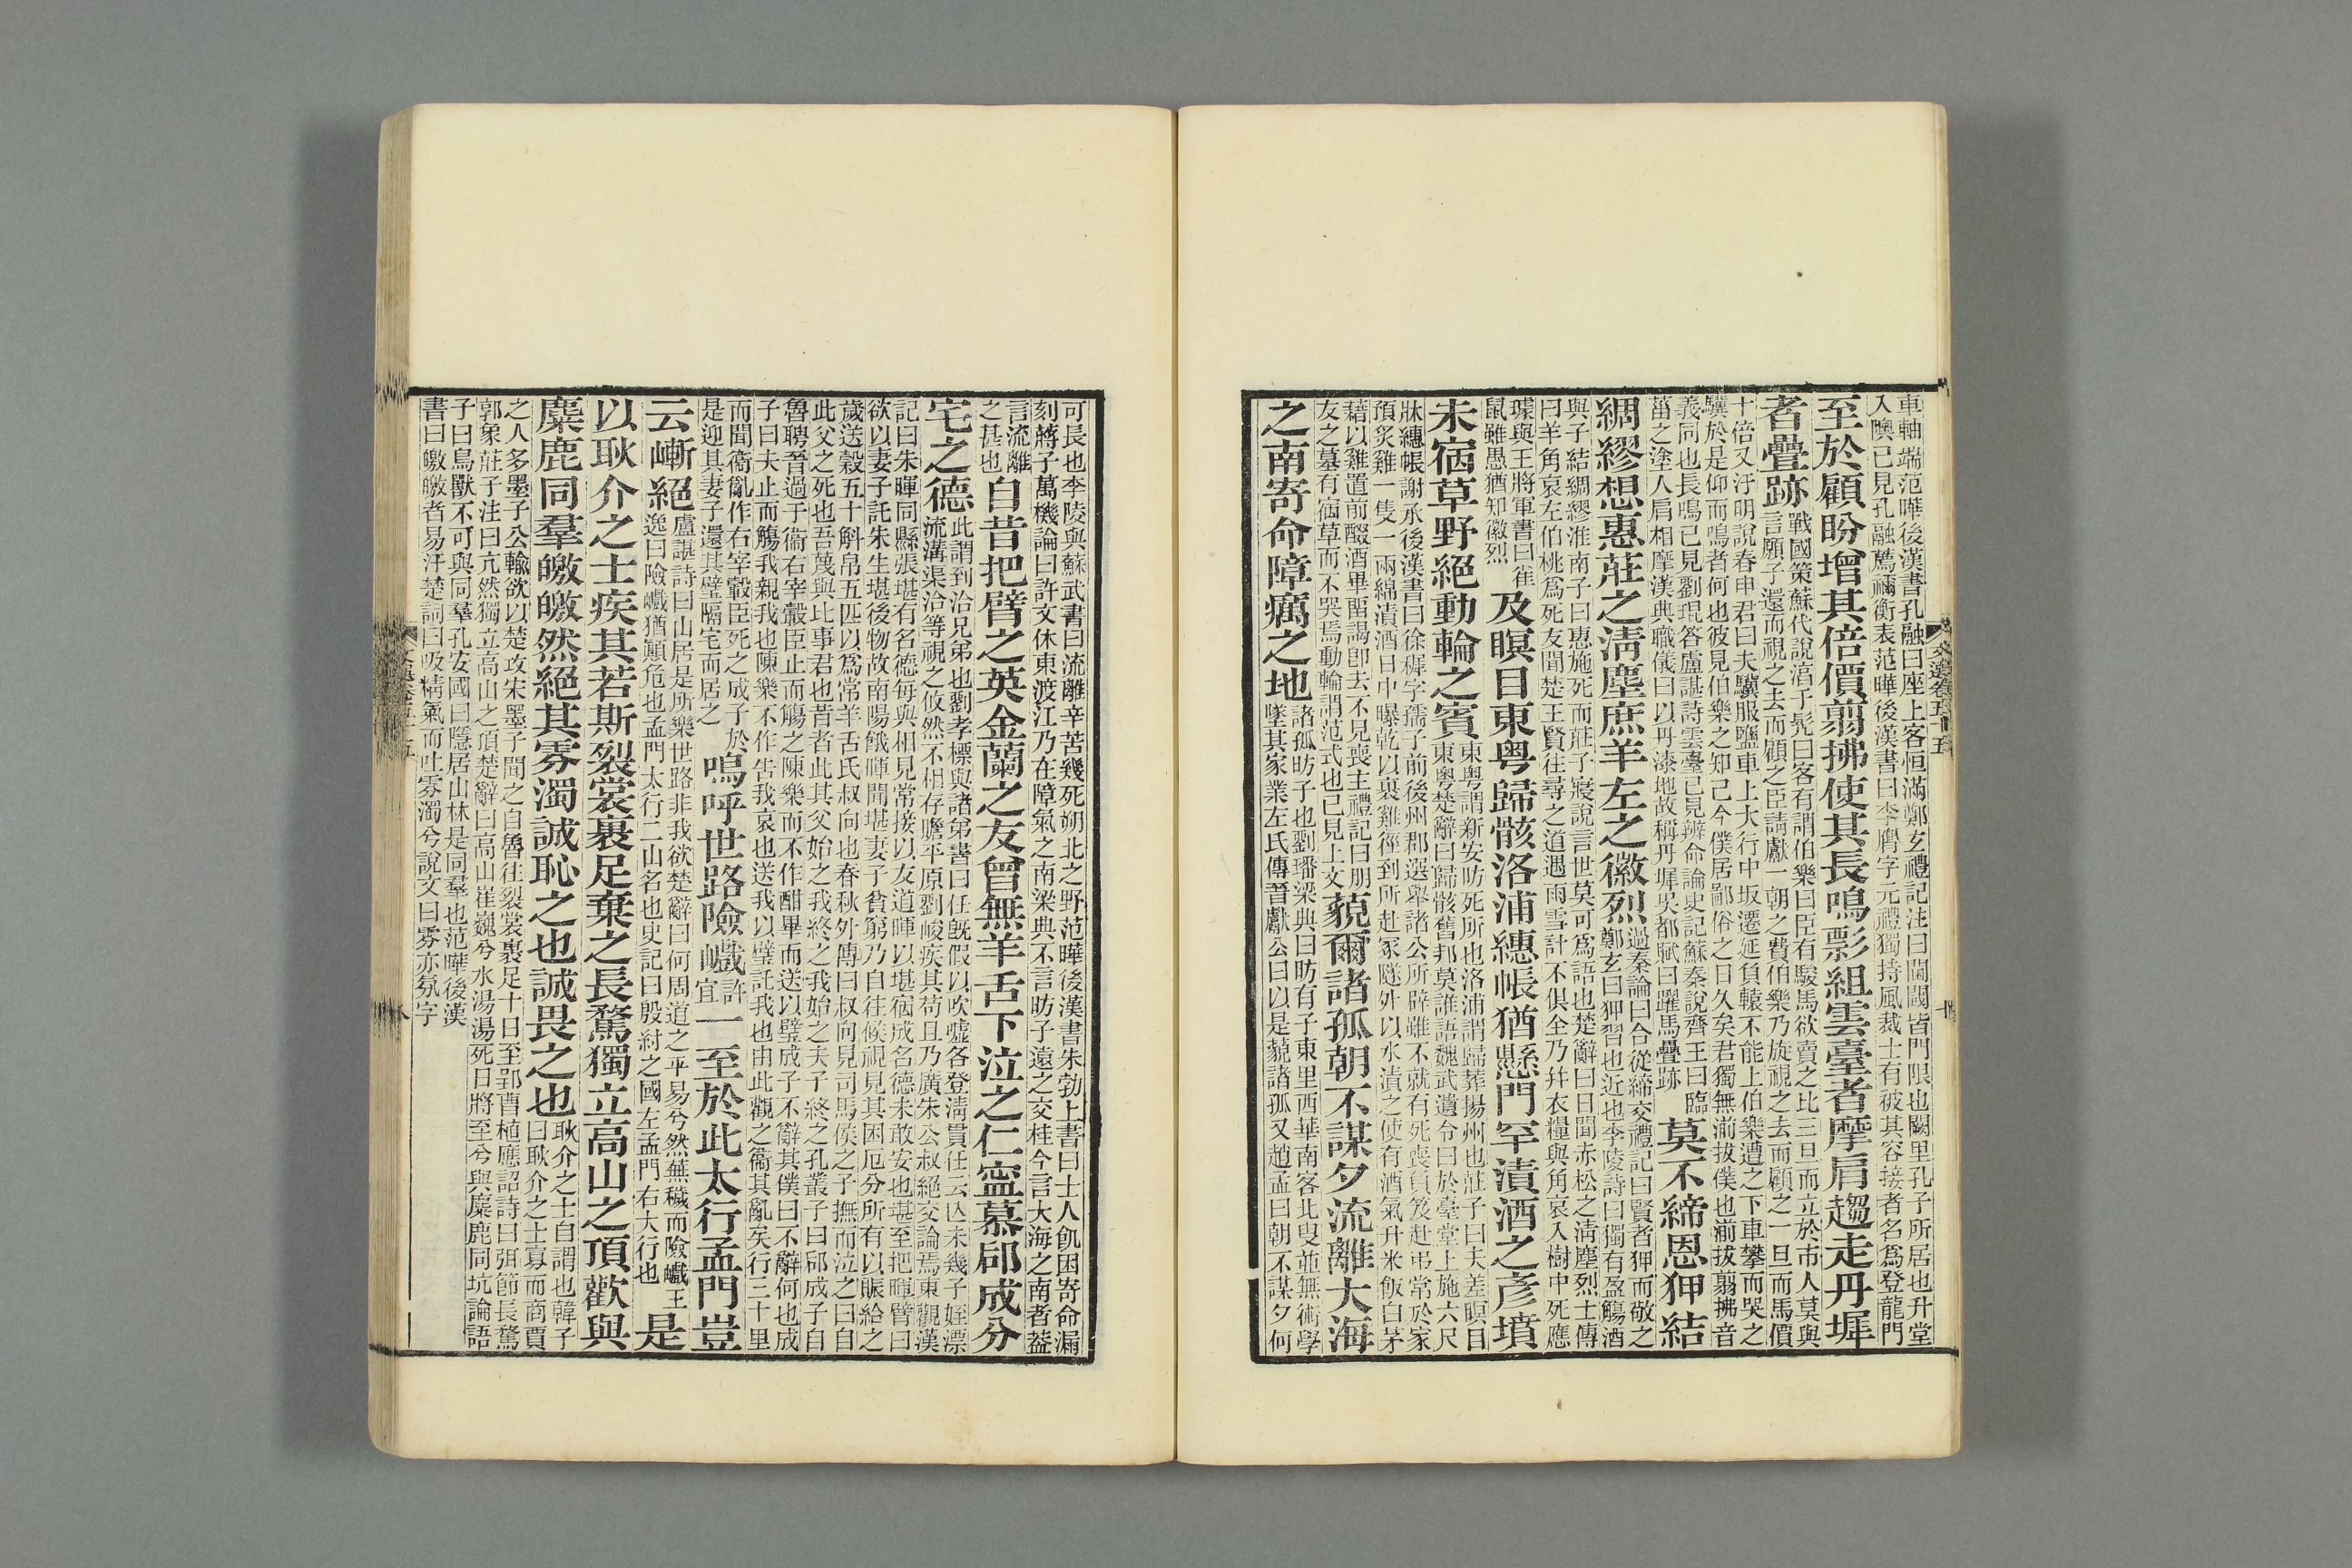 車軸端范曄後漢書孔融曰座上客恒滿鄭玄禮記注曰閫閾皆門限也闕里孔子所居也升堂
入隩已見孔融薦禰衡表范曄後漢書曰李膺字元禮獨持風裁士有被其容接者名爲登龍門
至於顧盼增其倍價翦拂使其長鳴影組雲臺者摩肩趨走丹墀
者疊跡
戰國策蘇代說淳于髡曰客有謂伯樂曰臣有駿馬欲賣之比三旦而立於市人莫與
言願子還而視之去而顧之臣請獻一朝之費伯樂乃旋視之去而顧之一旦而馬價
十倍又汗明說春申君曰夫驥服鹽車上太行中坂遷延負轅不能上伯樂遭之下車攀而哭之
驥於是仰而鳴者何也彼見伯樂之知己今僕居鄙俗之日久矣君獨無湔拔僕也湔拔翦拂音
義同也長鳴已見劉琨答盧諶詩雲臺已見辨命論史記蘇秦說齊王曰臨
菑之塗人肩相摩漢典職儀曰以丹漆地故稱丹墀吳都賦曰躍馬疊跡
莫不締恩狎結
綢繆想惠莊之淸塵庶羊左之徽烈
過秦論曰合從締交禮記曰賢者狎而敬之
鄭玄曰狎習也近也李陵詩曰獨有盈觴酒
與子結綢繆淮南子曰惠施死而莊子寢說言世莫可爲語也楚辭曰聞赤松之淸塵烈士傳
曰羊角哀左伯桃爲死友聞楚王賢往尋之道遇雨雪計不俱全乃幷衣糧與角哀入樹中死應
璩與王將軍書曰雀
鼠雖愚猶知徽烈
及瞑目東粤歸骸洛浦繐帳猶懸門罕漬酒之彦墳
未宿草野絕動輪之賓
東粤謂新安昉死所也洛浦謂歸葬揚州也莊子曰夫差瞑目
東粤楚辭曰歸骸舊邦莫誰語魏武遺令曰於臺堂上施六尺
牀繐帳謝承後漢書曰徐稺字孺子前後州郡選舉諸公所辟雖不就有死喪負笈赴弔常於家
預炙雞一隻一兩綿漬酒日中曝乾以裹雞徑到所赴冢隧外以水漬之使有酒氣升米飯白茅
藉以雞置前醊酒畢留謁卽去不見喪主禮記曰朋
友之墓有宿草而不哭焉動輪謂范式也已見上文
藐爾諸孤朝不謀夕流離大海
之南寄命障癘之地
諸孤昉子也劉璠梁典曰昉有子東里西華南客北叟並無術學
墜其家業左氏傳晉獻公曰以是藐諸孤又趙孟曰朝不謀夕何
文選卷五十五
可長也李陵與蘇武書曰流離辛苦幾死朔北之野范曄後漢書朱勃上書曰士人飢困寄命漏
刻蔣子萬機論曰許文休東渡江乃在障氣之南梁典不言昉子遠之交桂今言大海之南者葢
言流離
之甚也
自昔把臂之英金蘭之友曾無羊舌下泣之仁寍慕郈成分
宅之德
此謂到洽兄弟也劉孝標與諸弟書曰任旣假以吹噓各登淸貫任云亾未幾子姪漂
流溝渠洽等視之攸然不相存贍平原劉峻疾其苟且乃廣朱公叔絕交論焉東觀漢
記曰朱暉同縣張堪有名德每與相見常接以友道暉以堪宿成名德未敢安也堪至把暉臂曰
欲以妻子託朱生堪後物故南陽餓暉聞堪妻子貧窮乃自往候視見其困厄分所有以賑給之
歲送穀五十斛帛五匹以爲常羊舌氏叔向也春秋外傳曰叔向見司馬侯之子撫而泣之曰自
此父之死也吾蔑與比事君也昔者此其父始之我終之我始之夫子終之孔叢子曰郈成子自
魯聘晉過于衞右宰穀臣止而觴之陳樂而不作酣畢而送以璧成子不辭其僕曰不辭何也成
子曰夫止而觴我親我也陳樂不作告我哀也送我以璧託我也由此觀之衞其亂矣行三十里
而聞衞亂作右宰穀臣死之成子於
是迎其妻子還其璧隔宅而居之
嗚呼世路險巇
許
宜
一至於此太行孟門豈
云嶃絕
盧諶詩曰山居是所樂世路非我欲楚辭曰何周道之平易兮然蕪穢而險巇王
逸曰險巇猶顚危也孟門太行二山名也史記曰殷紂之國左孟門右大行也
是
以耿介之士疾其若斯裂裳裹足棄之長騖獨立高山之頂歡與
麋鹿同羣皦皦然絕其雰濁誠恥之也誠畏之也
耿介之士自謂也韓子
曰耿介之士寡而商賈
之人多墨子公輸欲以楚攻宋墨子聞之自魯往裂裳裹足十日至郢曹植應詔詩曰弭節長騖
郭象莊子注曰亢然獨立高山之頂楚辭曰高山崔巍兮水湯湯死日將至兮與麋鹿同坑論語
子曰鳥獸不可與同羣孔安國曰隱居山林是同羣也范曄後漢
書曰皦皦者易汙楚詞曰吸精氣而吐雰濁兮說文曰雰亦氛字